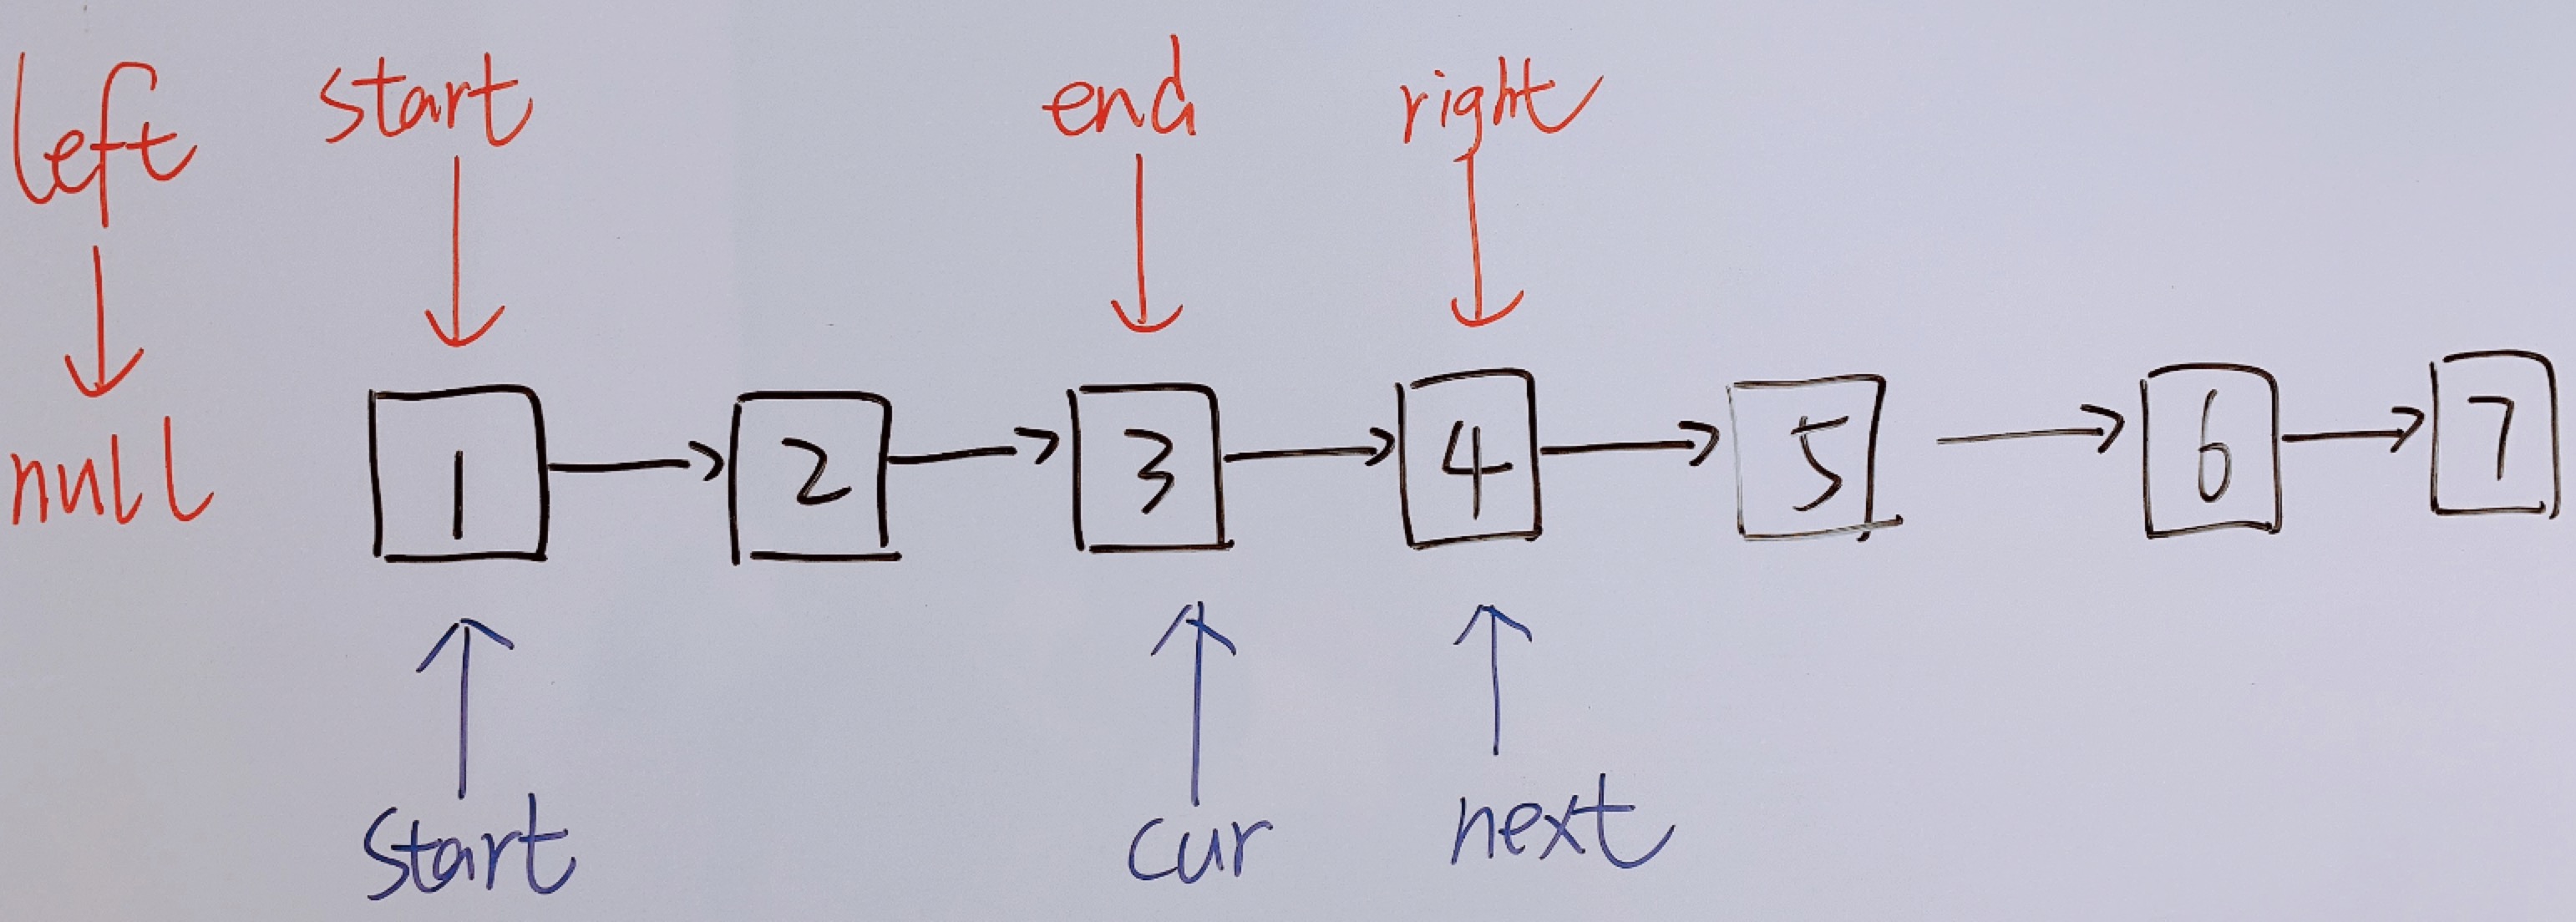 left start end right
null 1 2 3 4 5 6 7
start cur next